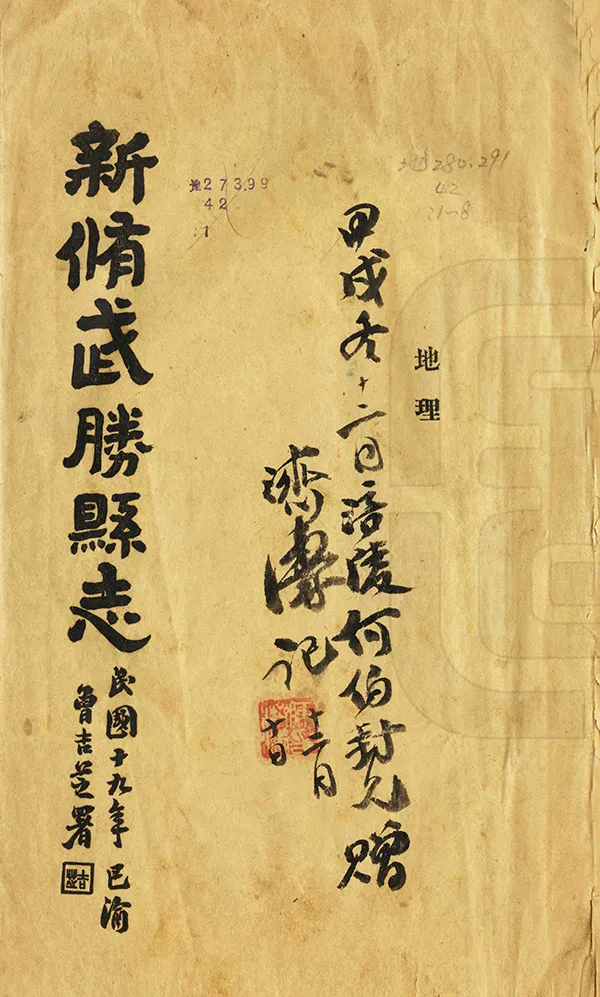 地280.291
42
:1-8
地理
甲戌冬十二月涪陵何伯封兄贈
記
十二月
十日
地273.99
42
:1
新脩武勝縣志
民國十九年巴渝
曾吉芝署
吉芝